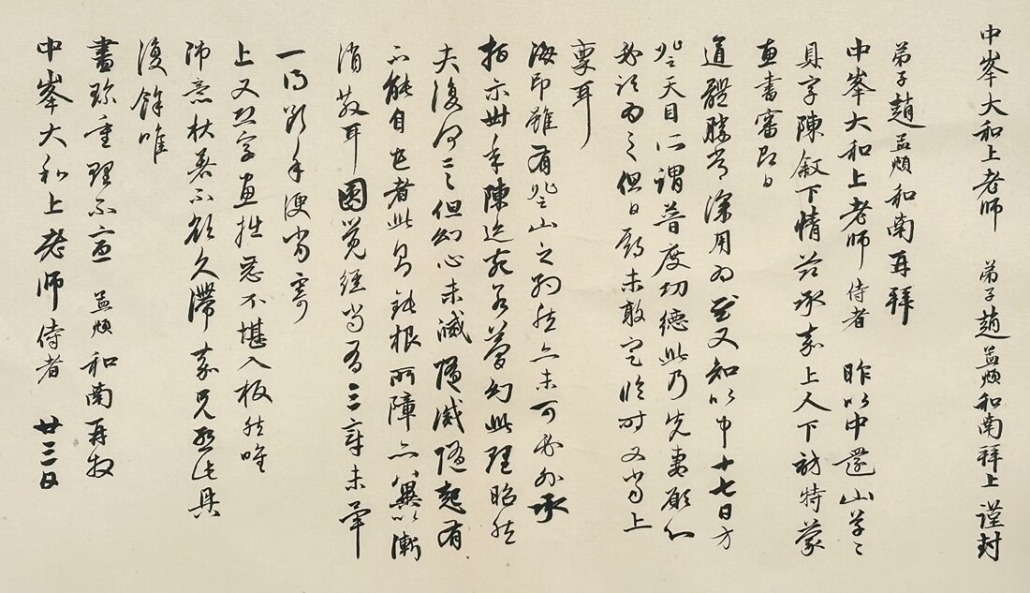 中峯大和上老師 弟子趙孟頫和南拜上謹封
弟子趙孟頫和南再拜
中峯大和上老師侍者 昨以中還山草々
具字陳敘下情茲承嘉上人下訪特蒙
惠書審即日
道體勝常深用為慰又知以中十七日方
登天目所謂普度功德此乃先妻願心
必須為之但日期未敢定臨時又當上
稟耳
海印雖有登山之約然亦未可必外承
指示卅年陳迹宛若夢幻此理昭然
夫復何言但幻心未滅隨滅隨起有
不能自已者此則鈍根所障亦冀以漸
消散耳圓覺經尚有三章未畢
一得斷手便當寄
上又恐字畫拙惡不堪入板然唯
師意 不欲久滯嘉兄 此具
復餘唯
盡珍重理不宣 孟頫和南再拜
中峯大和上老師侍者 廿三日